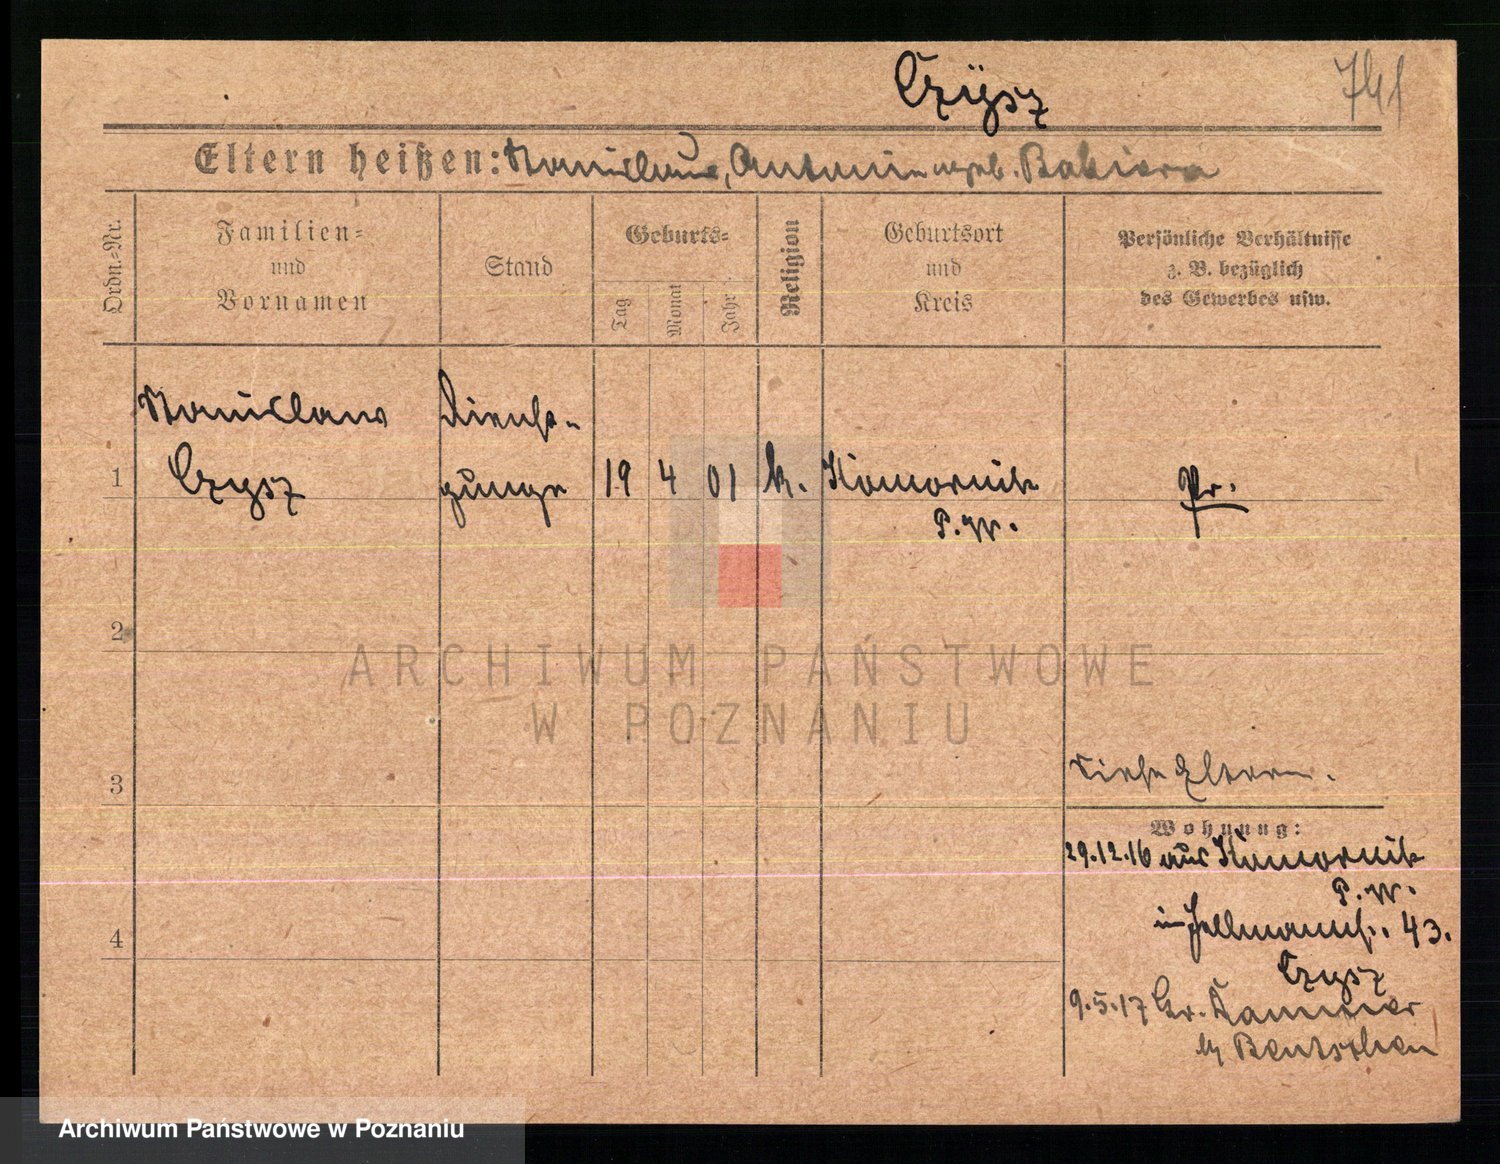 Czÿsz
741
Eltern heißen: Stanislaus, Antonin geb. Babiera
Ordn.-Nr.
Familien-
und
Vornamen
Stand
Geburts-
Tag
Monat
Jahr
Religion
Geburtsort
und
Kreis
Persönliche Verhältnisse
z. B. bezüglich
des Gewerbes usw.
Stanislaus
Dienst-
1 Czysz junge 19 4 01 k. Komornik Pr.
P. W.
2
3
siehe Eltern.
Wohnung:
29.12.16 aus Komornik
P. W.
4
43.
Czysz
9.5.17 Gr. Dammer
b/ Bentschen
ARCHIWUM PAŃSTWOWE
W POZNANIU
Archiwum Państwowe w Poznaniu